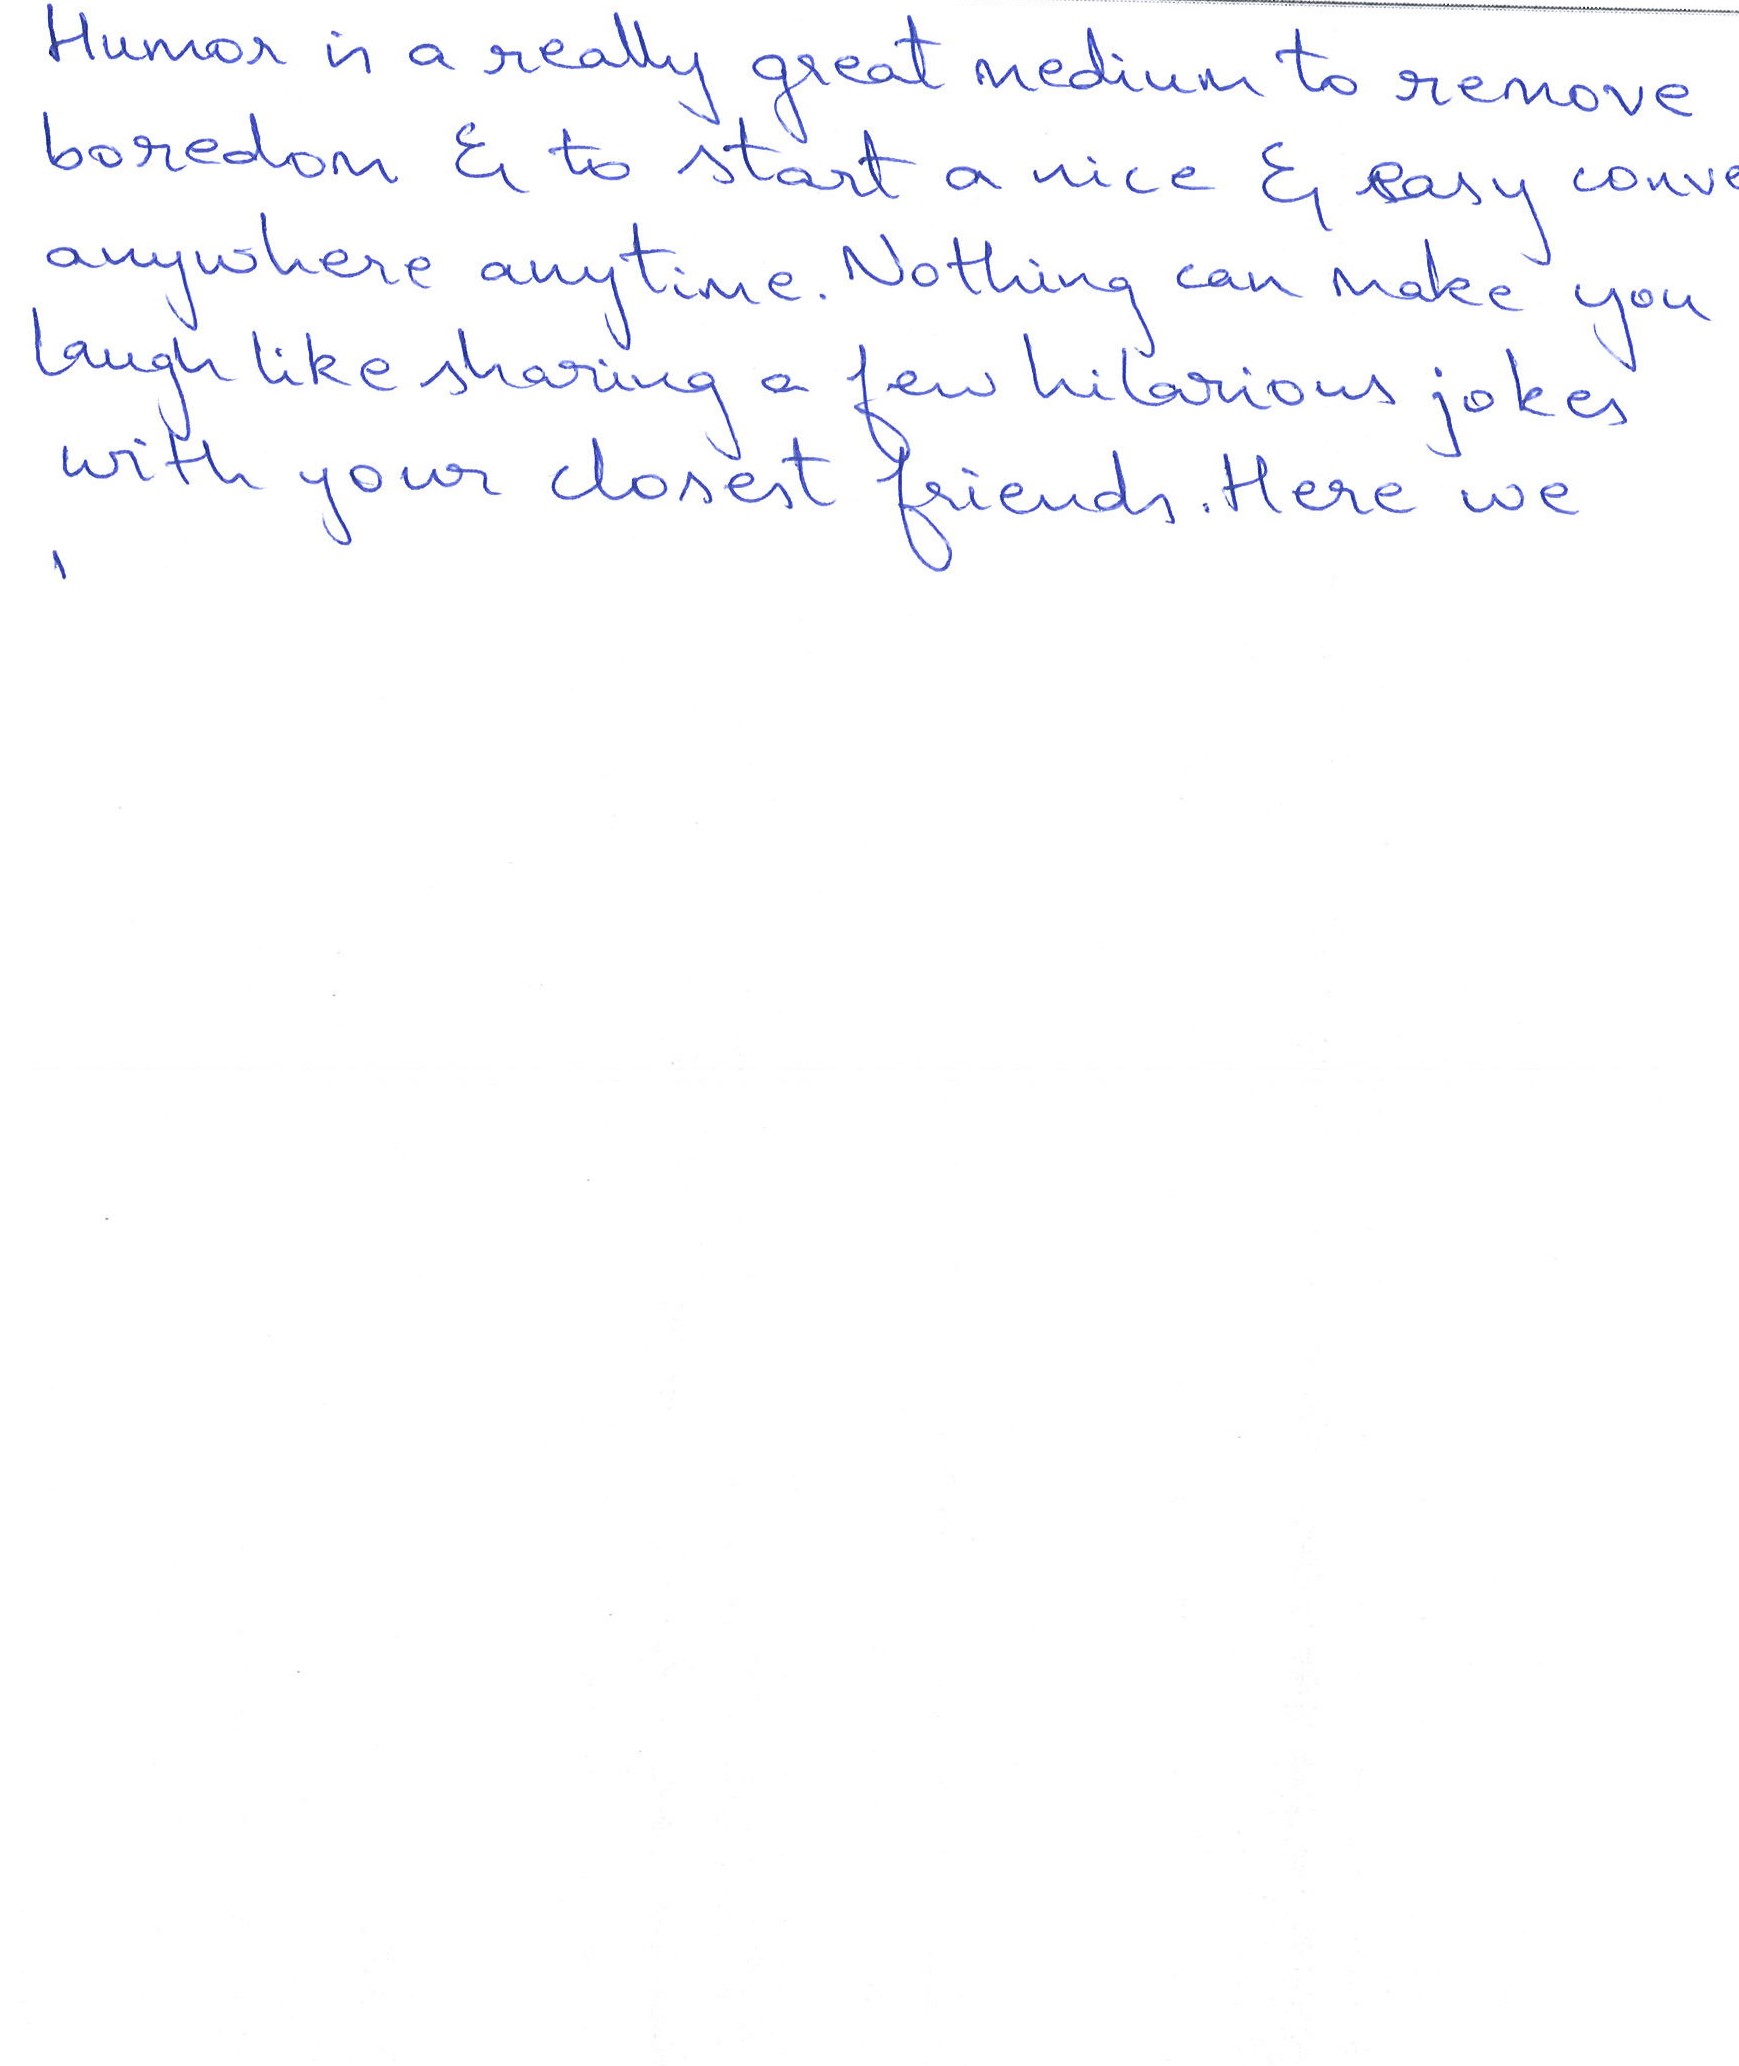 Humor is a really great medium to remove
boredom & to start a nice & easy conve
anywhere anytime. Nothing can make you
laugh like sharing a few hilarious jokes
with your closest friends. Here we